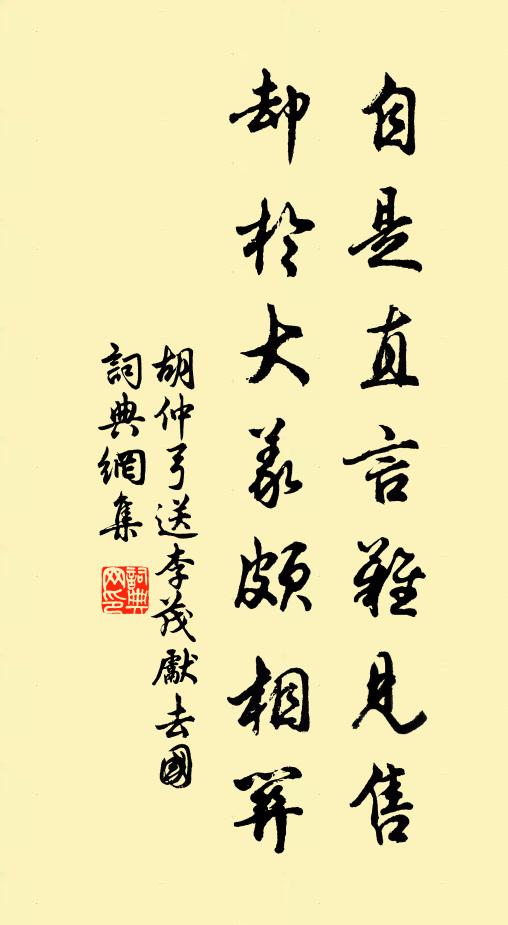 自是直言難見售
却於大義頗相關
胡仲弓送李茂獻去國
詞典網集
詞典
网印